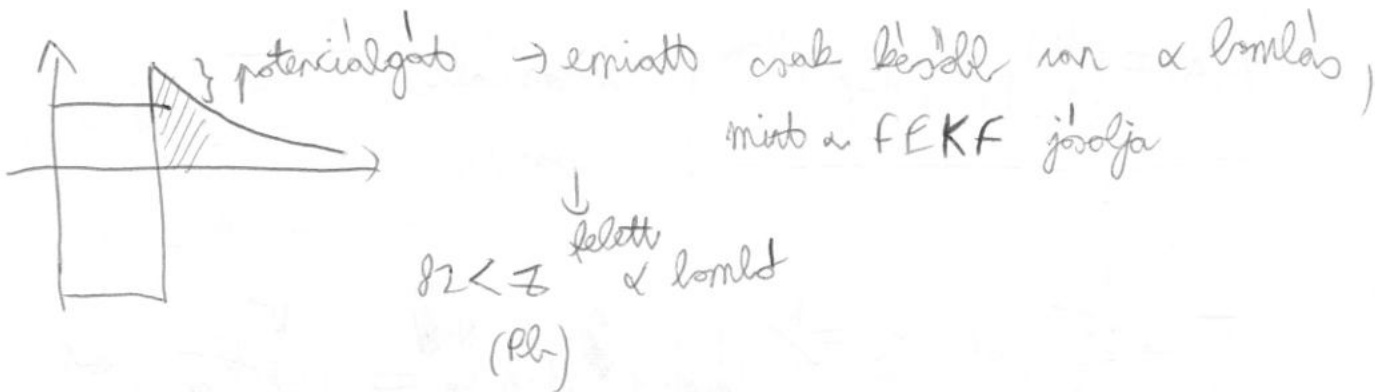 } potenciálgát → emiatt csak később van α bomlás,
mint a FEKF jósolja
↓
felett
82 < Z α bomló
(Pb)